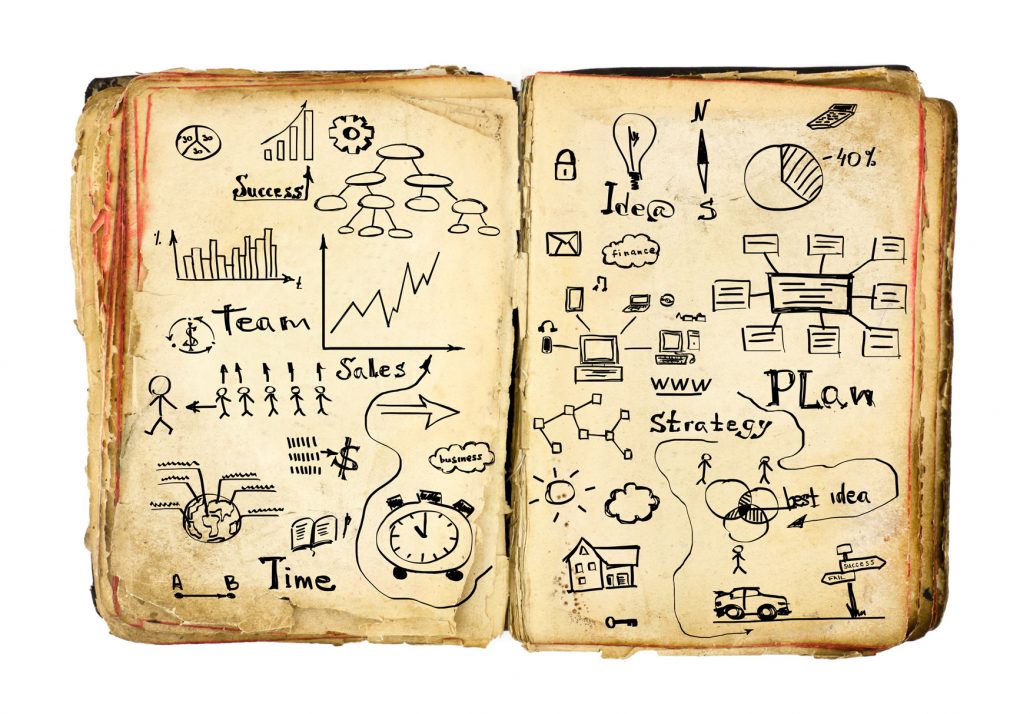 30 30
30
Success
%
t
$
Team
Sales
$
business
A B
Time
N
Ide@
S
-40%
finance
www
PLan
Strategy
best idea
SUCCESS
FAIL